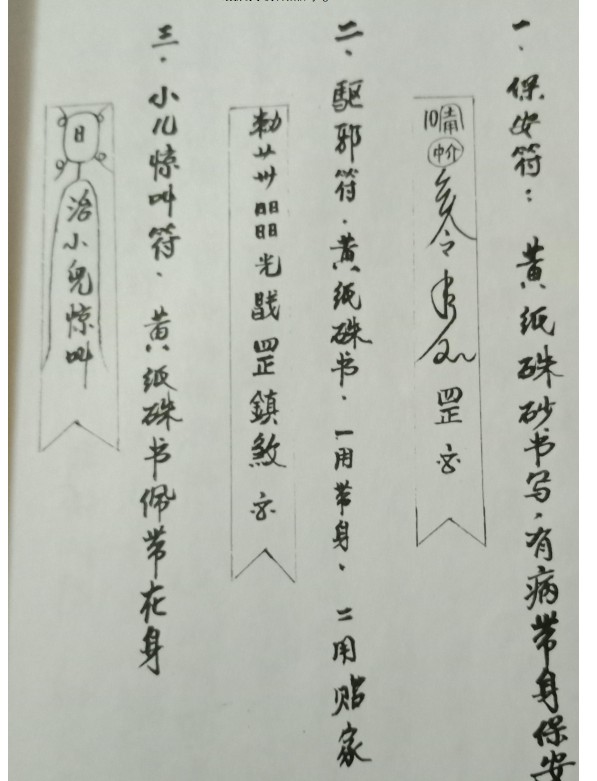 一、保安符：黄纸硃砂书写，有病带身保安
罡
二、驱邪符．黄纸硃书．一用带身．二用贴家
勅
晶光
罡鎮煞
三．小儿惊叫符．黄纸硃书佩带在身
日
治小兒惊叫